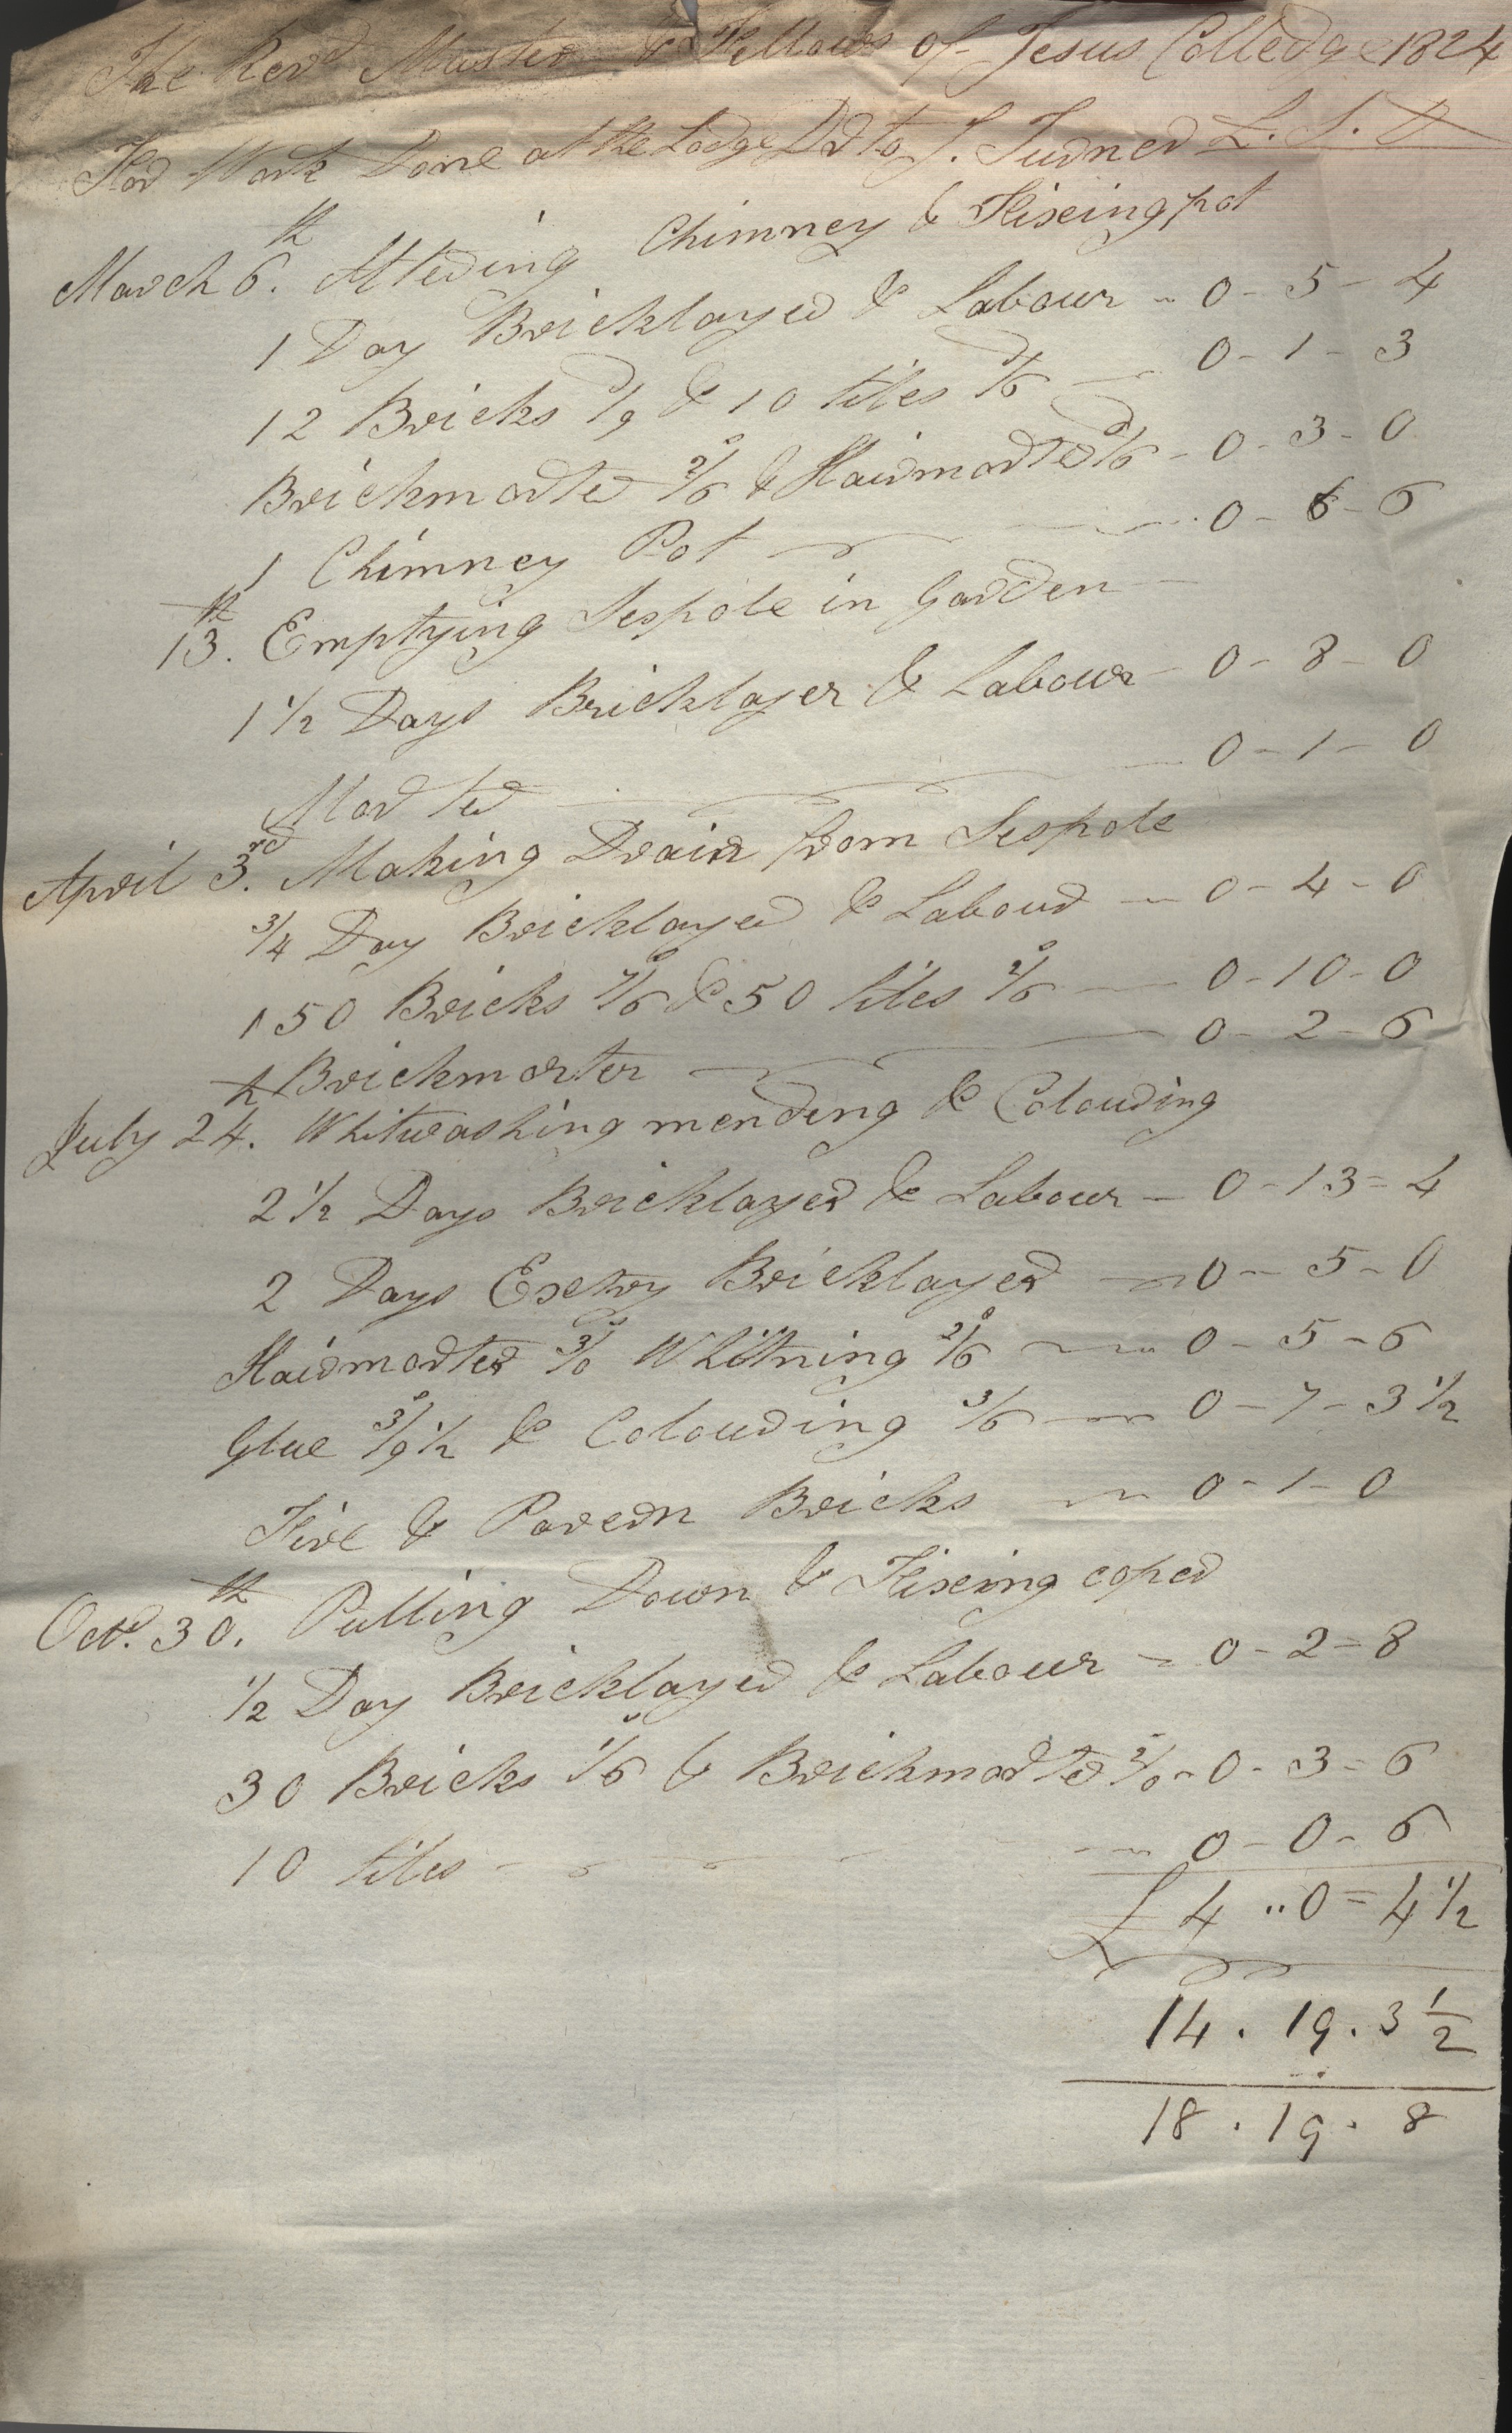 The Revd Master & Fellows of Jesus Colledge 1824
For Work Done at the Lodge Dr to J. Turner L. S. D
March 6th. Altering Chimney & Fixeing pot
1 Day Bricklayer & Labour - 0 - 5 - 4
12 Bricks d/9 & 10 tiles d/6 - 0 - 1 - 3
Brickmorter 2s/6 & Hairmorter d/6 - 0 - 3 - 0
1 Chimney Pot - 0 - 6 - 6
13th. Emptying Sespole in Garden
1 1/2 Days Bricklayer & Labour - 0 - 8 - 0
Morter - 0 - 1 - 0
April 3rd. Making Drain from Sespole
3/4 Day Bricklayer & Labour - 0 - 4 - 0
150 Bricks 7s/6 & 50 tiles 2s/6 - 0 - 10 - 0
Brickmorter - 0 - 2 - 6
July 24th. Whitwashing mending & Colouring
2 1/2 Days Bricklayer & Labour - 0 - 13 = 4
2 Days Exctry Bricklayer - 0 - 5 - 0
Hairmorter 3s/0 Whitning 2s/6 - 0 - 5 - 6
Glue 3s/9 1/2 & Colouring 3s/6 - 0 - 7 - 3 1/2
Fire & Pavern Bricks - 0 - 1 - 0
Octr. 30th. Pulling Down & Fixeing coper
1/2 Day Bricklayer & Labour - 0 - 2 = 8
30 Bricks 1s/6 & Brickmorter 2s/0 - 0 - 3 = 6
10 tiles - 0 - 0 - 6
£ 4 " 0 = 4 1/2
14 . 19 . 3 1/2
18 . 19 . 8